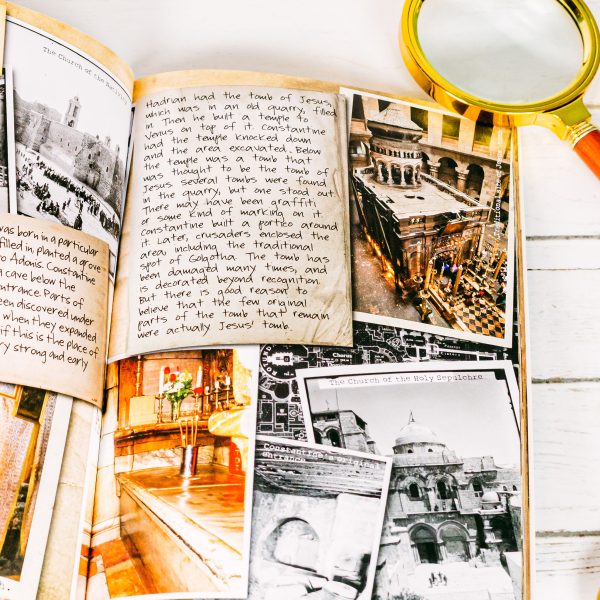 The Church of the Nativity
was born in a particular
filled in, planted a grove
to Adonis. Constantine
cave below the
entrance. Parts of
een discovered under
when they expanded
if this is the place of
ry strong and early
Hadrian had the tomb of Jesus,
which was in an old quarry, filled
in. Then he built a temple to
Venus on top of it. Constantine
had the temple knocked down
and the area excavated. Below
the temple was a tomb that
was thought to be the tomb of
Jesus. Several tombs were found
in the quarry, but one stood out.
There may have been graffiti
or some kind of marking on it.
Constantine built a portico around
it. Later, crusaders enclosed the
area, including the traditional
spot of Golgotha. The tomb has
been damaged many times, and
is decorated beyond recognition.
But there is good reason to
believe that the few original
parts of the tomb that remain
were actually Jesus' tomb.
Traditional
Chorus
The Church of the Holy Sepulchre
Constantine's original
entrance